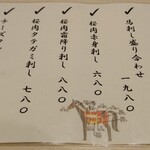 馬刺し盛り合わせ 一九八〇
桜肉赤身刺し 六八〇
桜肉霜降り刺し 八八〇
桜肉タテガミ刺し 七八〇